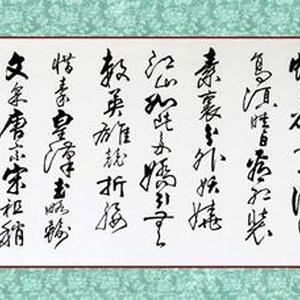 須晴日看红裝
素裹分外妖嬈
江山如此多嬌引無
數英雄競折腰
惜秦皇漢武略輸
文采唐宗宋祖稍